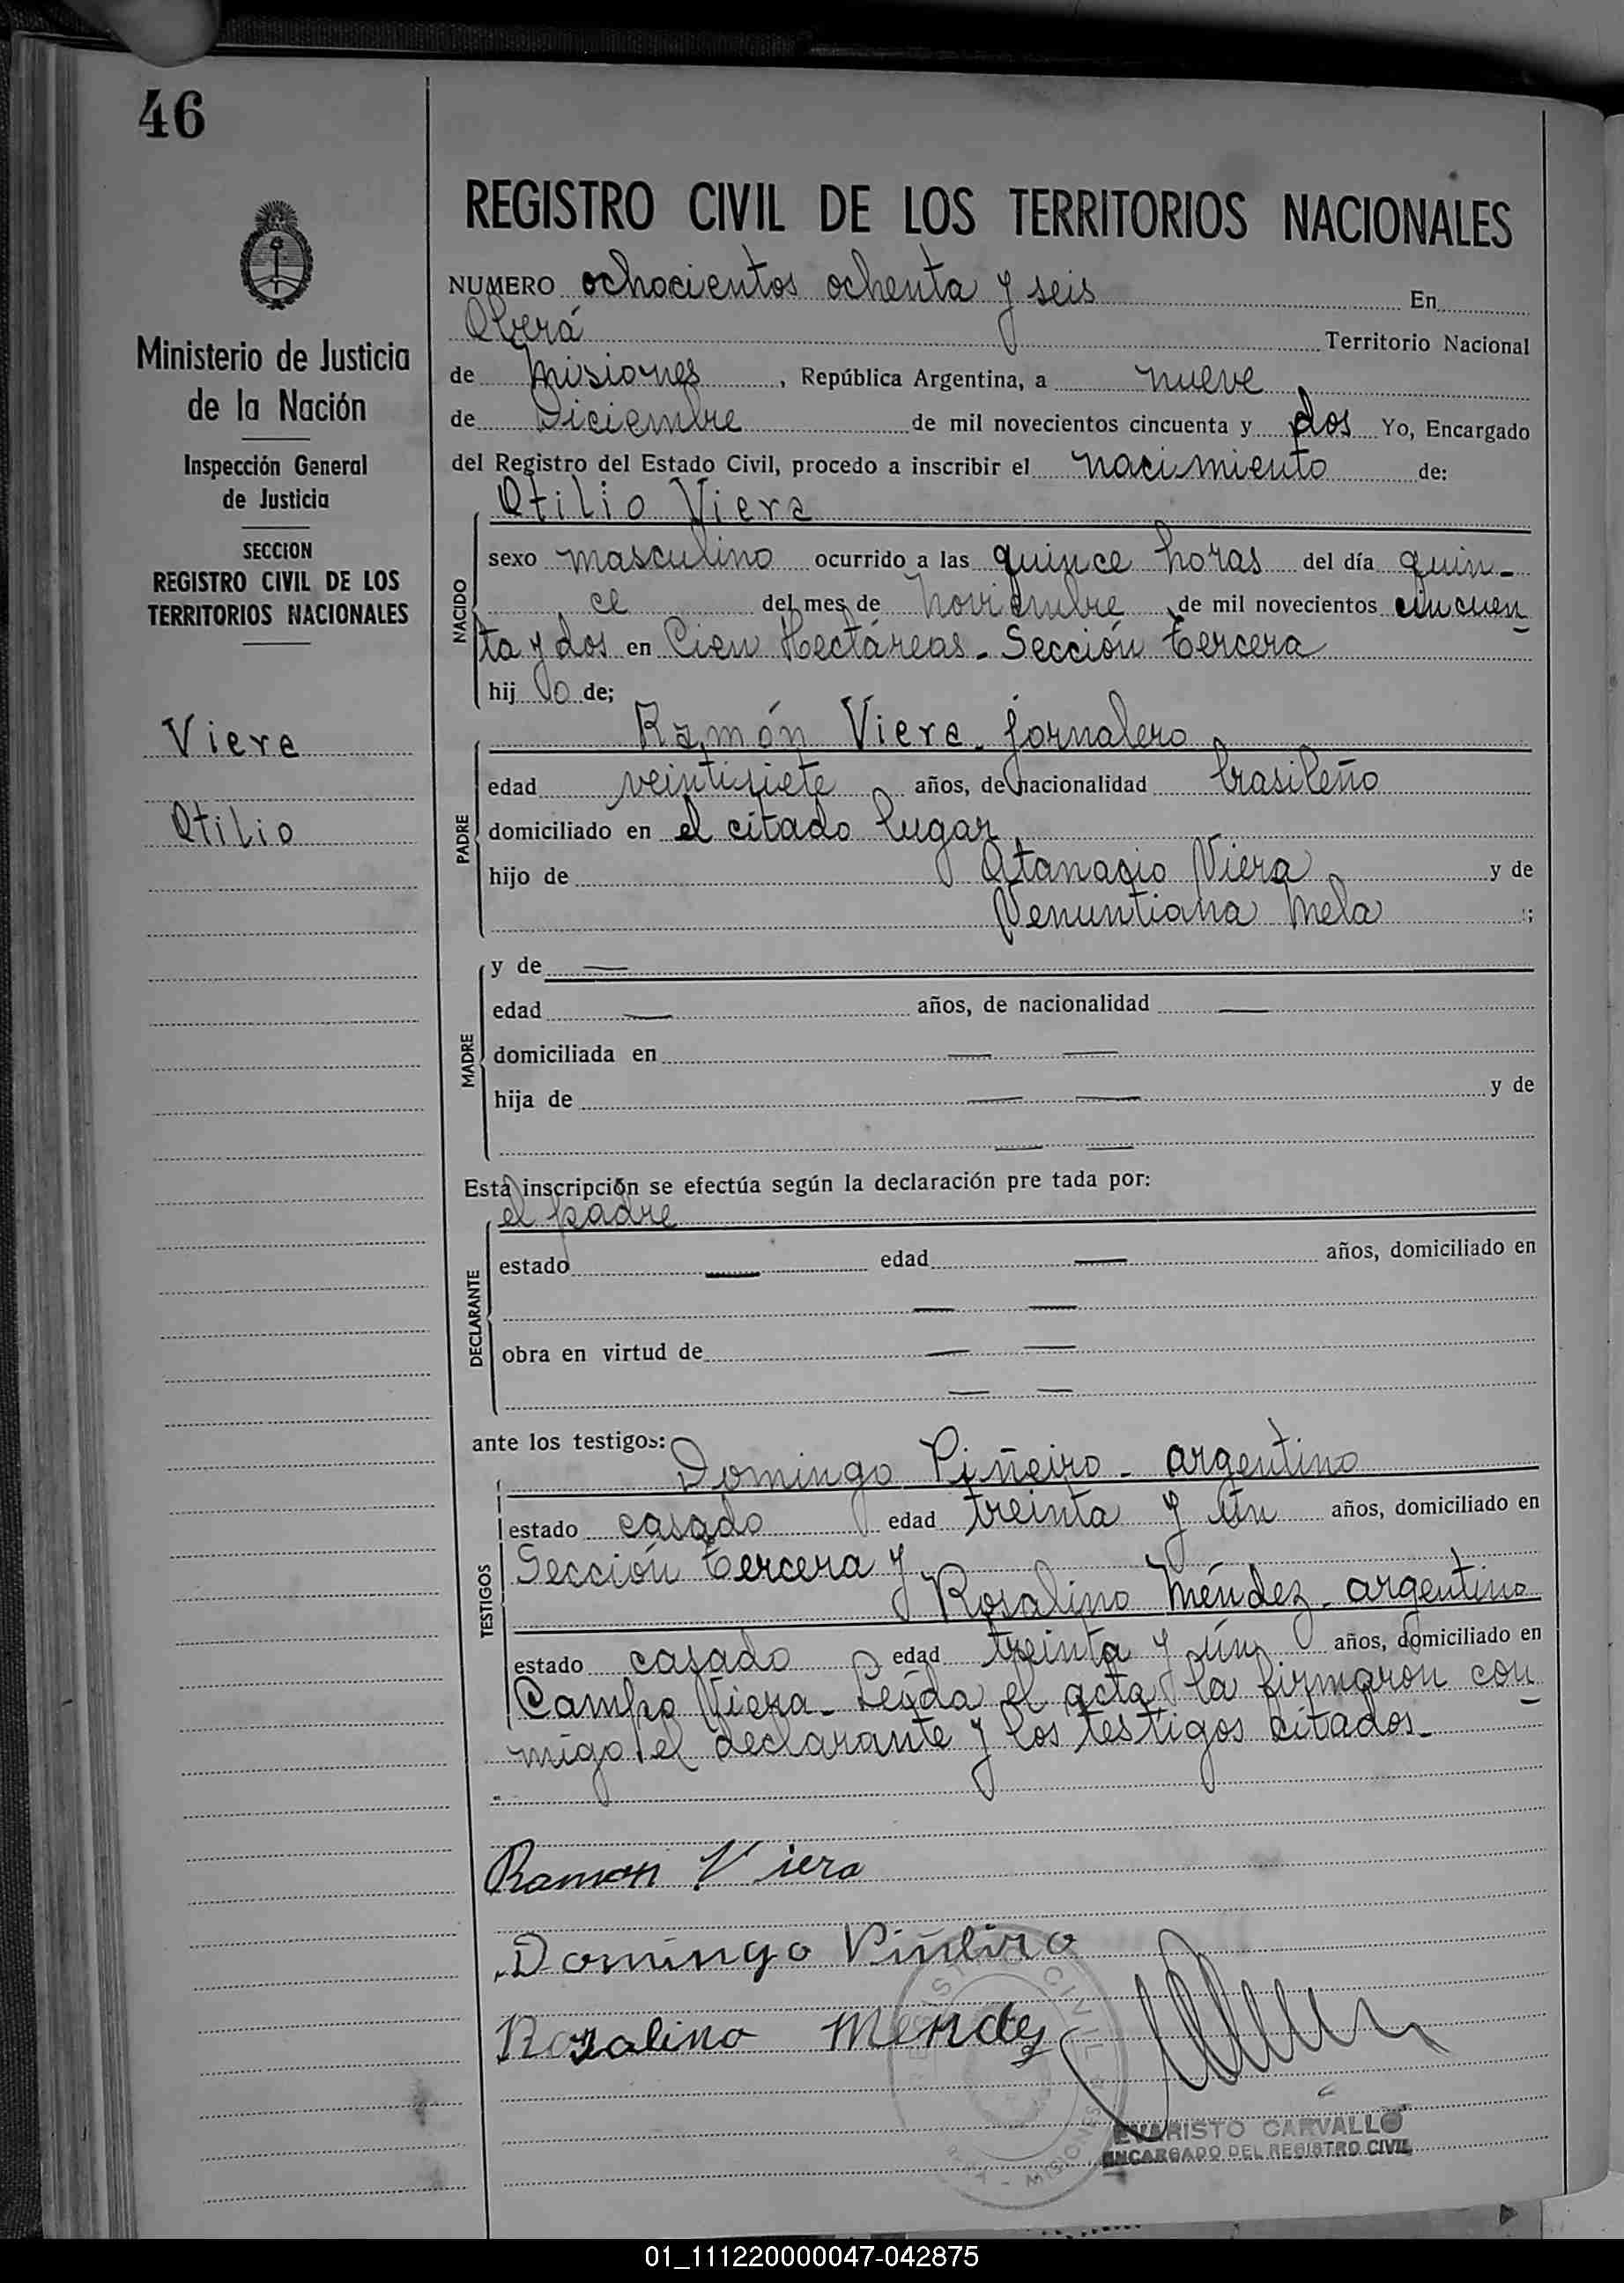 46
REGISTRO CIVIL DE LOS TERRITORIOS NACIONALES
Ministerio de Justicia
de la Nación
Inspección General
de Justicia
SECCION
REGISTRO CIVIL DE LOS
TERRITORIOS NACIONALES
Viera
Otilio
NUMERO ochocientos ochenta y seis En
Oberá Territorio Nacional
de Misiones, República Argentina, a nueve
de Diciembre de mil novecientos cincuenta y dos Yo, Encargado
del Registro del Estado Civil, procedo a inscribir el nacimiento de:
Otilio Viera
NACIDO
sexo masculino ocurrido a las quince horas del día quin-
ce del mes de noviembre de mil novecientos cincuen
ta y dos en Cien Hectáreas - Sección tercera
hijo de;
Ramón Viera - jornalero
PADRE
edad veintisiete años, de nacionalidad brasileño
domiciliado en el citado lugar
hijo de Atanacio Viera y de
Venuntiana Mela ;
MADRE
y de —
edad — años, de nacionalidad —
domiciliada en — —
hija de — — y de
— —
Esta inscripción se efectúa según la declaración pre tada por:
el padre
DECLARANTE
estado — edad — años, domiciliado en
— —
obra en virtud de — —
— —
ante los testigos:
Domingo Piñeiro - argentino
TESTIGOS
estado casado edad treinta y un años, domiciliado en
Sección tercera y
Rosalino Méndez - argentino
estado casado edad treinta y ún años, domiciliado en
Campo Viera - Leída el acta, la firmaron con
migo el declarante y los testigos citados -
Ramon Viera
Domingo Piñeiro
Rozalino Mendez
REGISTRO CIVIL
MISIONES
EVARISTO CARVALLO
ENCARGADO DEL REGISTRO CIVIL
01_111220000047-042875